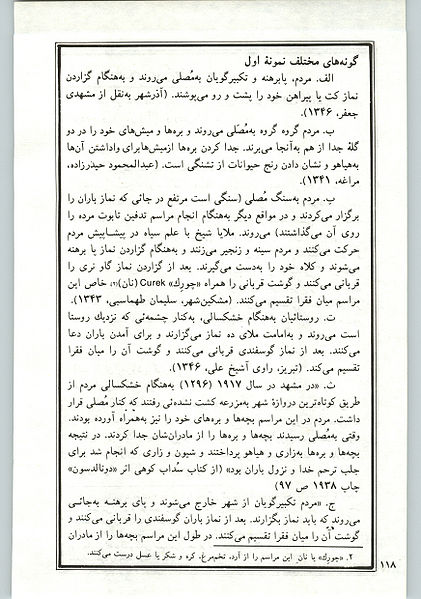 گونه‌های مختلف نمونهٔ اول
الف. مردم، پابرهنه و تکبیرگویان به‌مُصلی می‌روند و به‌هنگام گزاردن
نماز کت یا پیراهن خود را پشت و رو می‌پوشند. (آذرشهر به‌نقل از مشهدی
جعفر، ۱۳۴۶).
ب. مردم گروه گروه به‌مُصَلی می‌روند و بره‌ها و میش‌های خود را در دو
گلهٔ جدا از هم به‌آنجا می‌برند. جدا کردن بره‌ها ازمیش‌هابرای واداشتن آن‌ها
به‌هیاهو و نشان دادن رنج حیوانات از تشنگی است. (عبدالمحمود حیدرزاده،
مراغه، ۱۳۴۱).
پ. مردم به‌سنگ مُصلی (سنگی است مرتفع در جائی که نماز باران را
برگزار می‌کردند و در مواقع دیگر به‌هنگام انجام مراسم تدفین تابوت مرده را
روی آن می‌گذاشتند) می‌روند. ملایا شیخ با علم سیاه در پیشاپیش مردم
حرکت می‌کنند و مردم سینه و زنجیر می‌زنند و به‌هنگام گزاردن نماز پا برهنه
می‌شوند و کلاه خود را به‌دست می‌گیرند. بعد از گزاردن نماز گاو نری را
قربانی می‌کنند و گوشت قربانی را همراه «چورك» Curek (نان)(۲) خاص این
مراسم میان فقرا تقسیم می‌کنند. (مشکین‌شهر، سلیمان طهماسبی، ۱۳۴۳).
ت. روستائیان به‌هنگام خشکسالی، به‌کنار چشمه‌ئی که نزدیك روستا
است می‌روند و به‌امامت ملای ده نماز می‌گزارند و برای آمدن باران دعا
می‌کنند. بعد از نماز گوسفندی قربانی می‌کنند و گوشت آن را میان فقرا
تقسیم می‌کند. (تبریز، راوی آشیخ علی، ۱۳۴۶).
ث. «در مشهد در سال ۱۹۱۷ (۱۲۹۶) به‌هنگام خشکسالی مردم از
طریق کوتاه‌ترین دروازهٔ شهر به‌مزرعه کشت نشده‌ئی رفتند که کنار مُصلی قرار
داشت. مردم در این مراسم بچه‌ها و بره‌های خود را نیز به‌همراه آورده بودند.
وقتی به‌مُصلی رسیدند بچه‌ها و بره‌ها را از مادران‌شان جدا کردند. در نتیجه
بچه‌ها و بره‌ها به‌زاری و هیاهو پرداختند و شیون و زاری که انجام شد برای
جلب ترحم خدا و نزول باران بود» (از کتاب سُداب کوهی اثر «دونالدسون»
چاپ ۱۹۳۸ ص ۹۷)
ج. «مردم تکبیرگویان از شهر خارج می‌شوند و پای برهنه به‌جائی
می‌روند که باید نماز بگزارند. بعد از نماز باران گوسفندی را قربانی می‌کنند و
گوشت آن را میان فقرا تقسیم می‌کنند. در طول این مراسم بچه‌ها را از مادران
۲. «چورك» یا نان این مراسم را از آرد، تخم‌مرغ، کره و شکر یا عسل درست می‌کنند.
۱۱۸